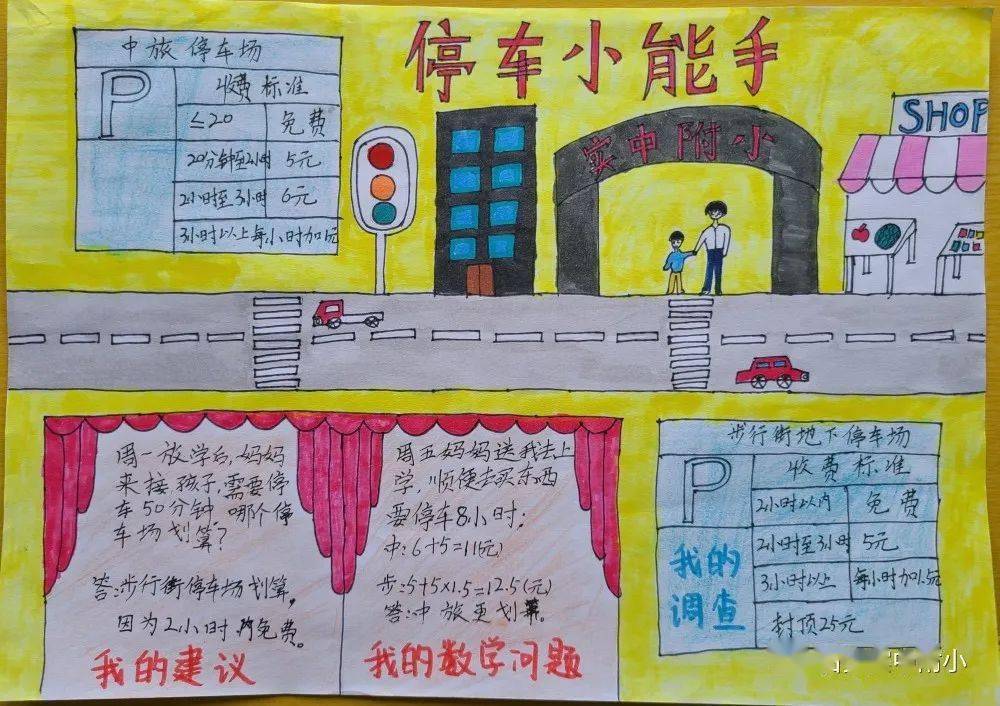 停车小能手
中旅停车场
P
收费标准
≤20 免费
20分钟至2小时 5元
2小时至3小时 6元
3小时以上每小时加1元
实中附小
SHOP
周一放学后,妈妈
来接孩子,需要停
车50分钟 哪个停
车场划算?
答:步行街停车场划算,
因为2小时内免费。
我的建议
周五妈妈送我去上
学,顺便去买东西
要停车8小时:
中:6+5=11(元)
步:5+5×1.5=12.5(元)
答:中旅更划算。
我的数学问题
步行街地下停车场
P
收费标准
2小时以内 免费
2小时至3小时 5元
3小时以上 每小时加1.5元
封顶25元
我的
调查
小